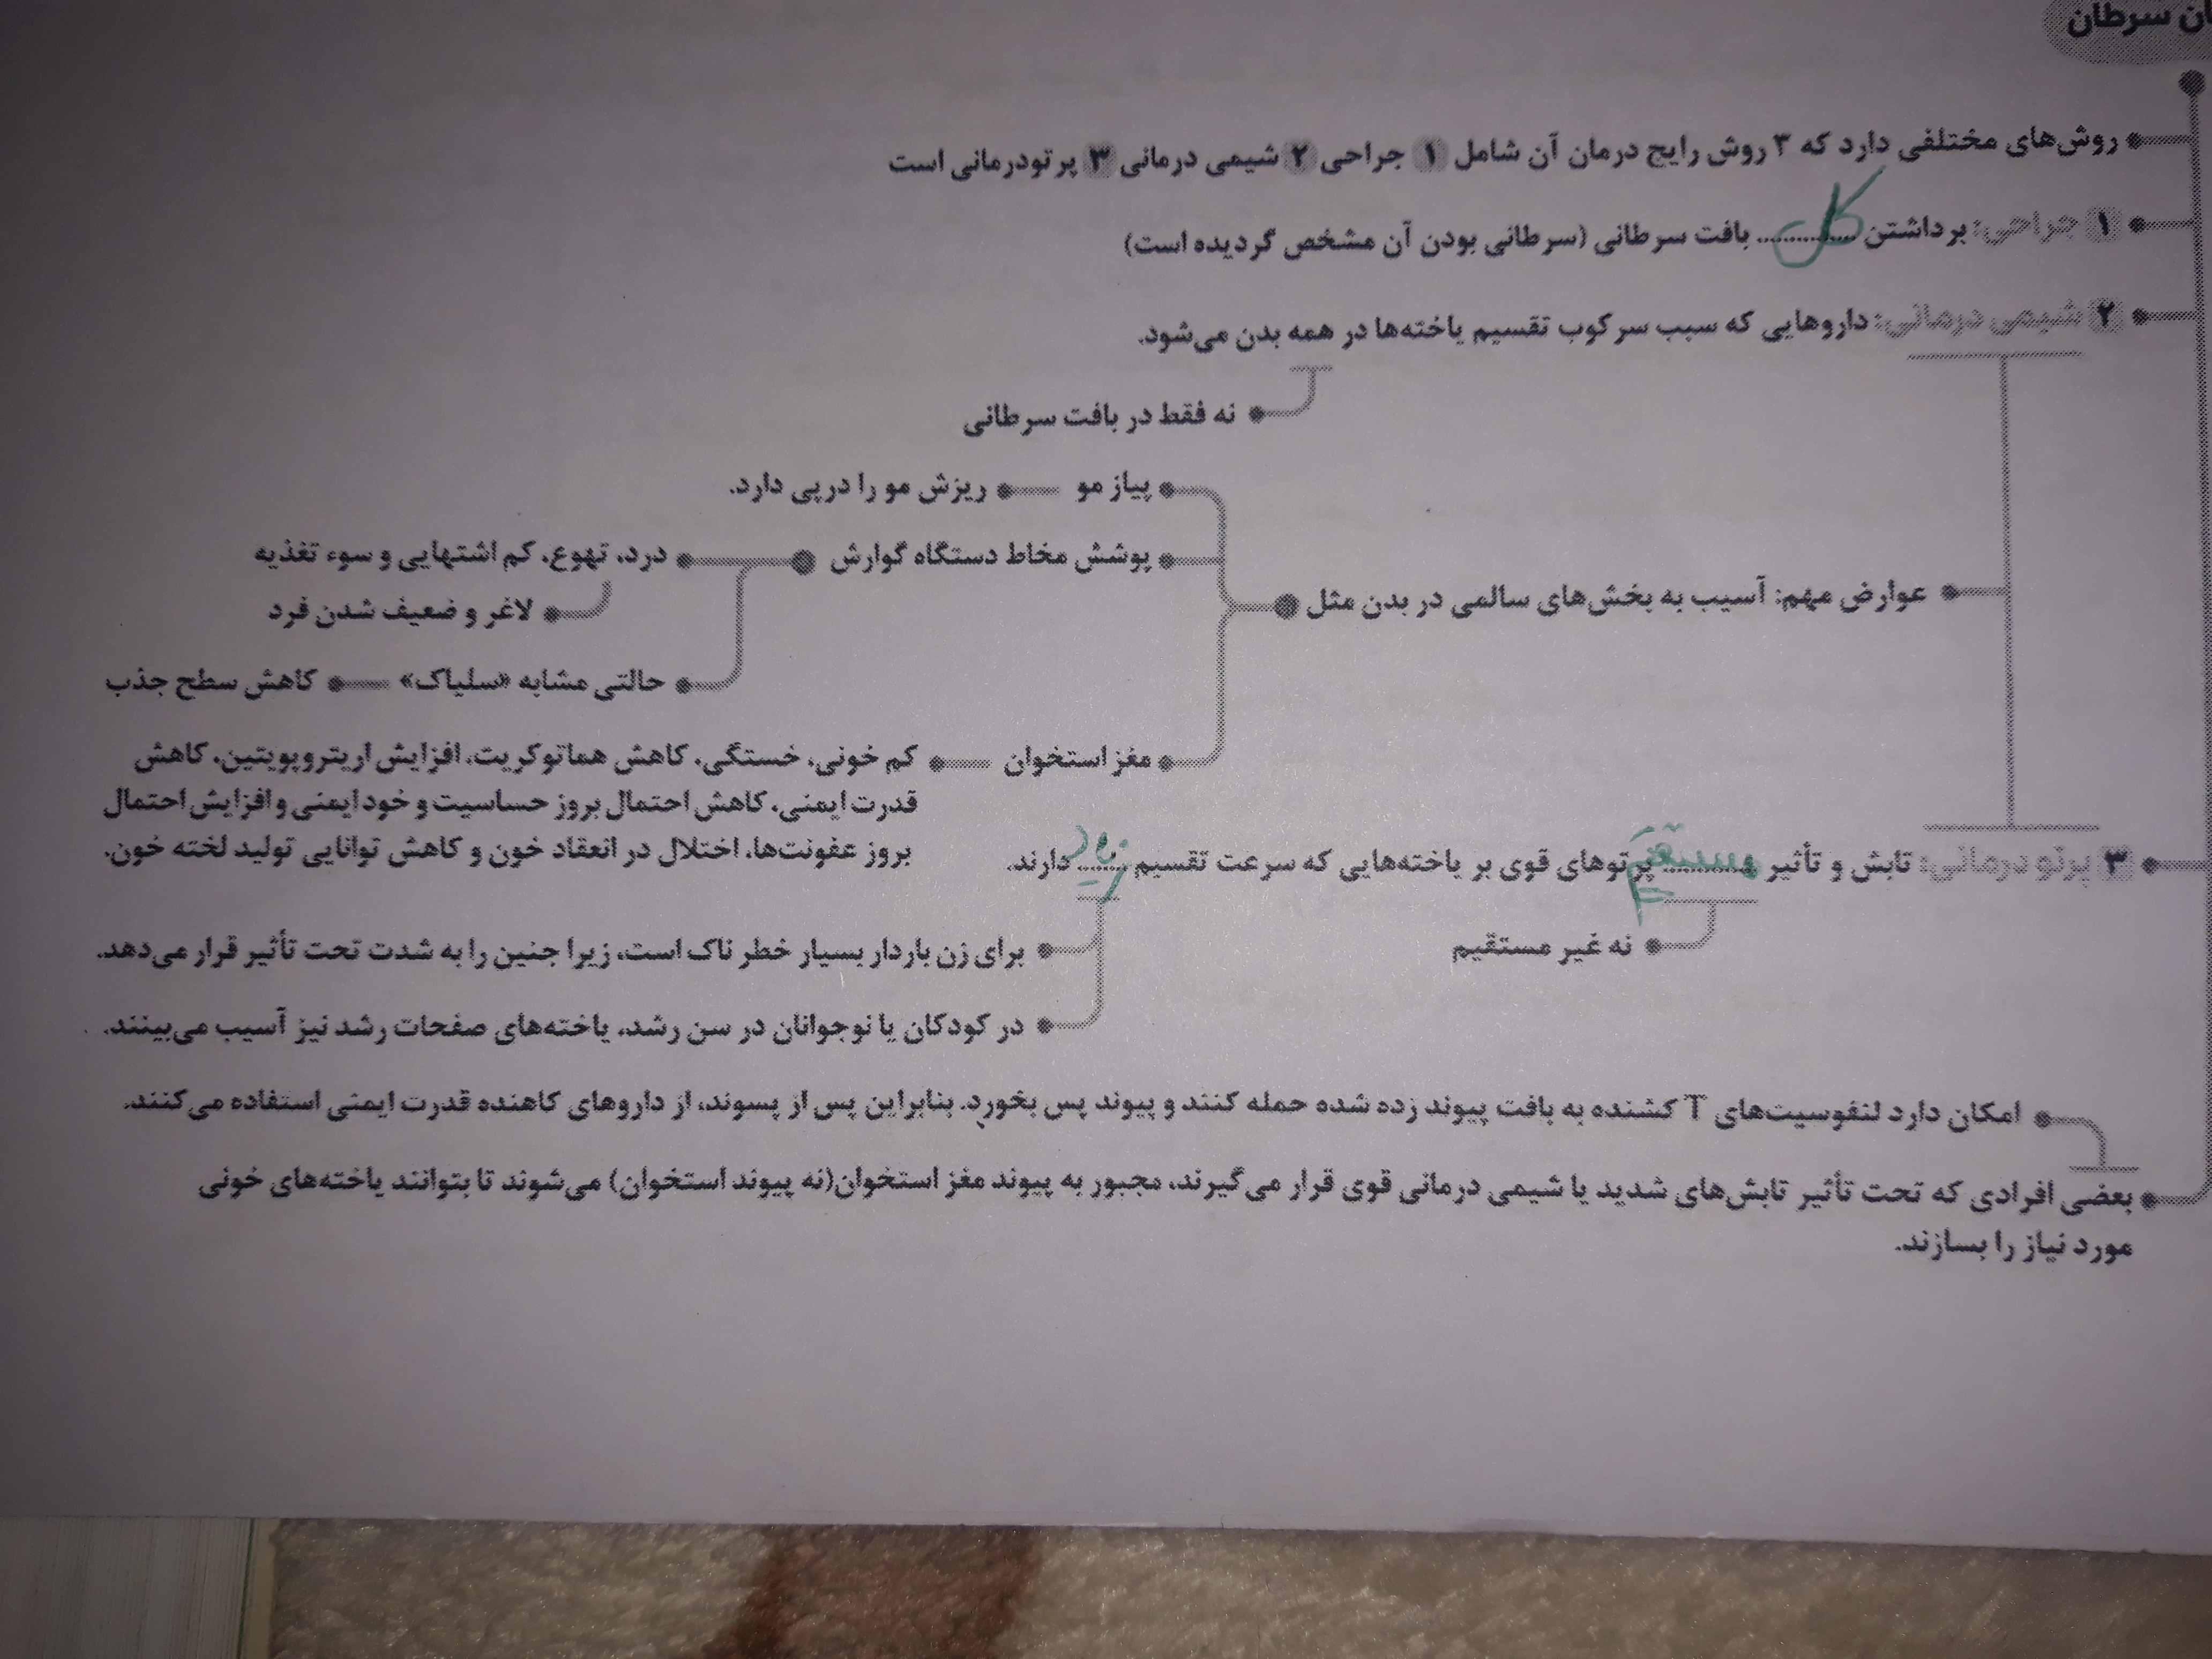 سرطان
روش‌های مختلفی دارد که ۳ روش رایج درمان آن شامل ۱ جراحی ۲ شیمی درمانی ۳ پرتودرمانی است
۱ جراحی: برداشتن کل بافت سرطانی (سرطانی بودن آن مشخص گردیده است)
۲ شیمی درمانی: داروهایی که سبب سرکوب تقسیم یاخته‌ها در همه بدن می‌شود.
نه فقط در بافت سرطانی
پیاز مو ریزش مو را درپی دارد.
پوشش مخاط دستگاه گوارش درد، تهوع، کم اشتهایی و سوء تغذیه
عوارض مهم: آسیب به بخش‌های سالمی در بدن مثل
لاغر و ضعیف شدن فرد
حالتی مشابه «سلیاک» کاهش سطح جذب
مغز استخوان کم خونی، خستگی، کاهش هماتوکریت، افزایش اریتروپویتین، کاهش
قدرت ایمنی، کاهش احتمال بروز حساسیت و خودایمنی و افزایش احتمال
بروز عفونت‌ها، اختلال در انعقاد خون و کاهش توانایی تولید لخته خون.
۳ پرتو درمانی: تابش و تأثیر مستقیم پرتوهای قوی بر یاخته‌هایی که سرعت تقسیم زیاد دارند.
نه غیر مستقیم
برای زن باردار بسیار خطر ناک است، زیرا جنین را به شدت تحت تأثیر قرار می‌دهد.
در کودکان یا نوجوانان در سن رشد، یاخته‌های صفحات رشد نیز آسیب می‌بینند.
امکان دارد لنفوسیت‌های T کشنده به بافت پیوند زده شده حمله کنند و پیوند پس بخورد. بنابراین پس از پسوند، از داروهای کاهنده قدرت ایمنی استفاده می‌کنند.
بعضی افرادی که تحت تأثیر تابش‌های شدید یا شیمی درمانی قوی قرار می‌گیرند، مجبور به پیوند مغز استخوان(نه پیوند استخوان) می‌شوند تا بتوانند یاخته‌های خونی
مورد نیاز را بسازند.